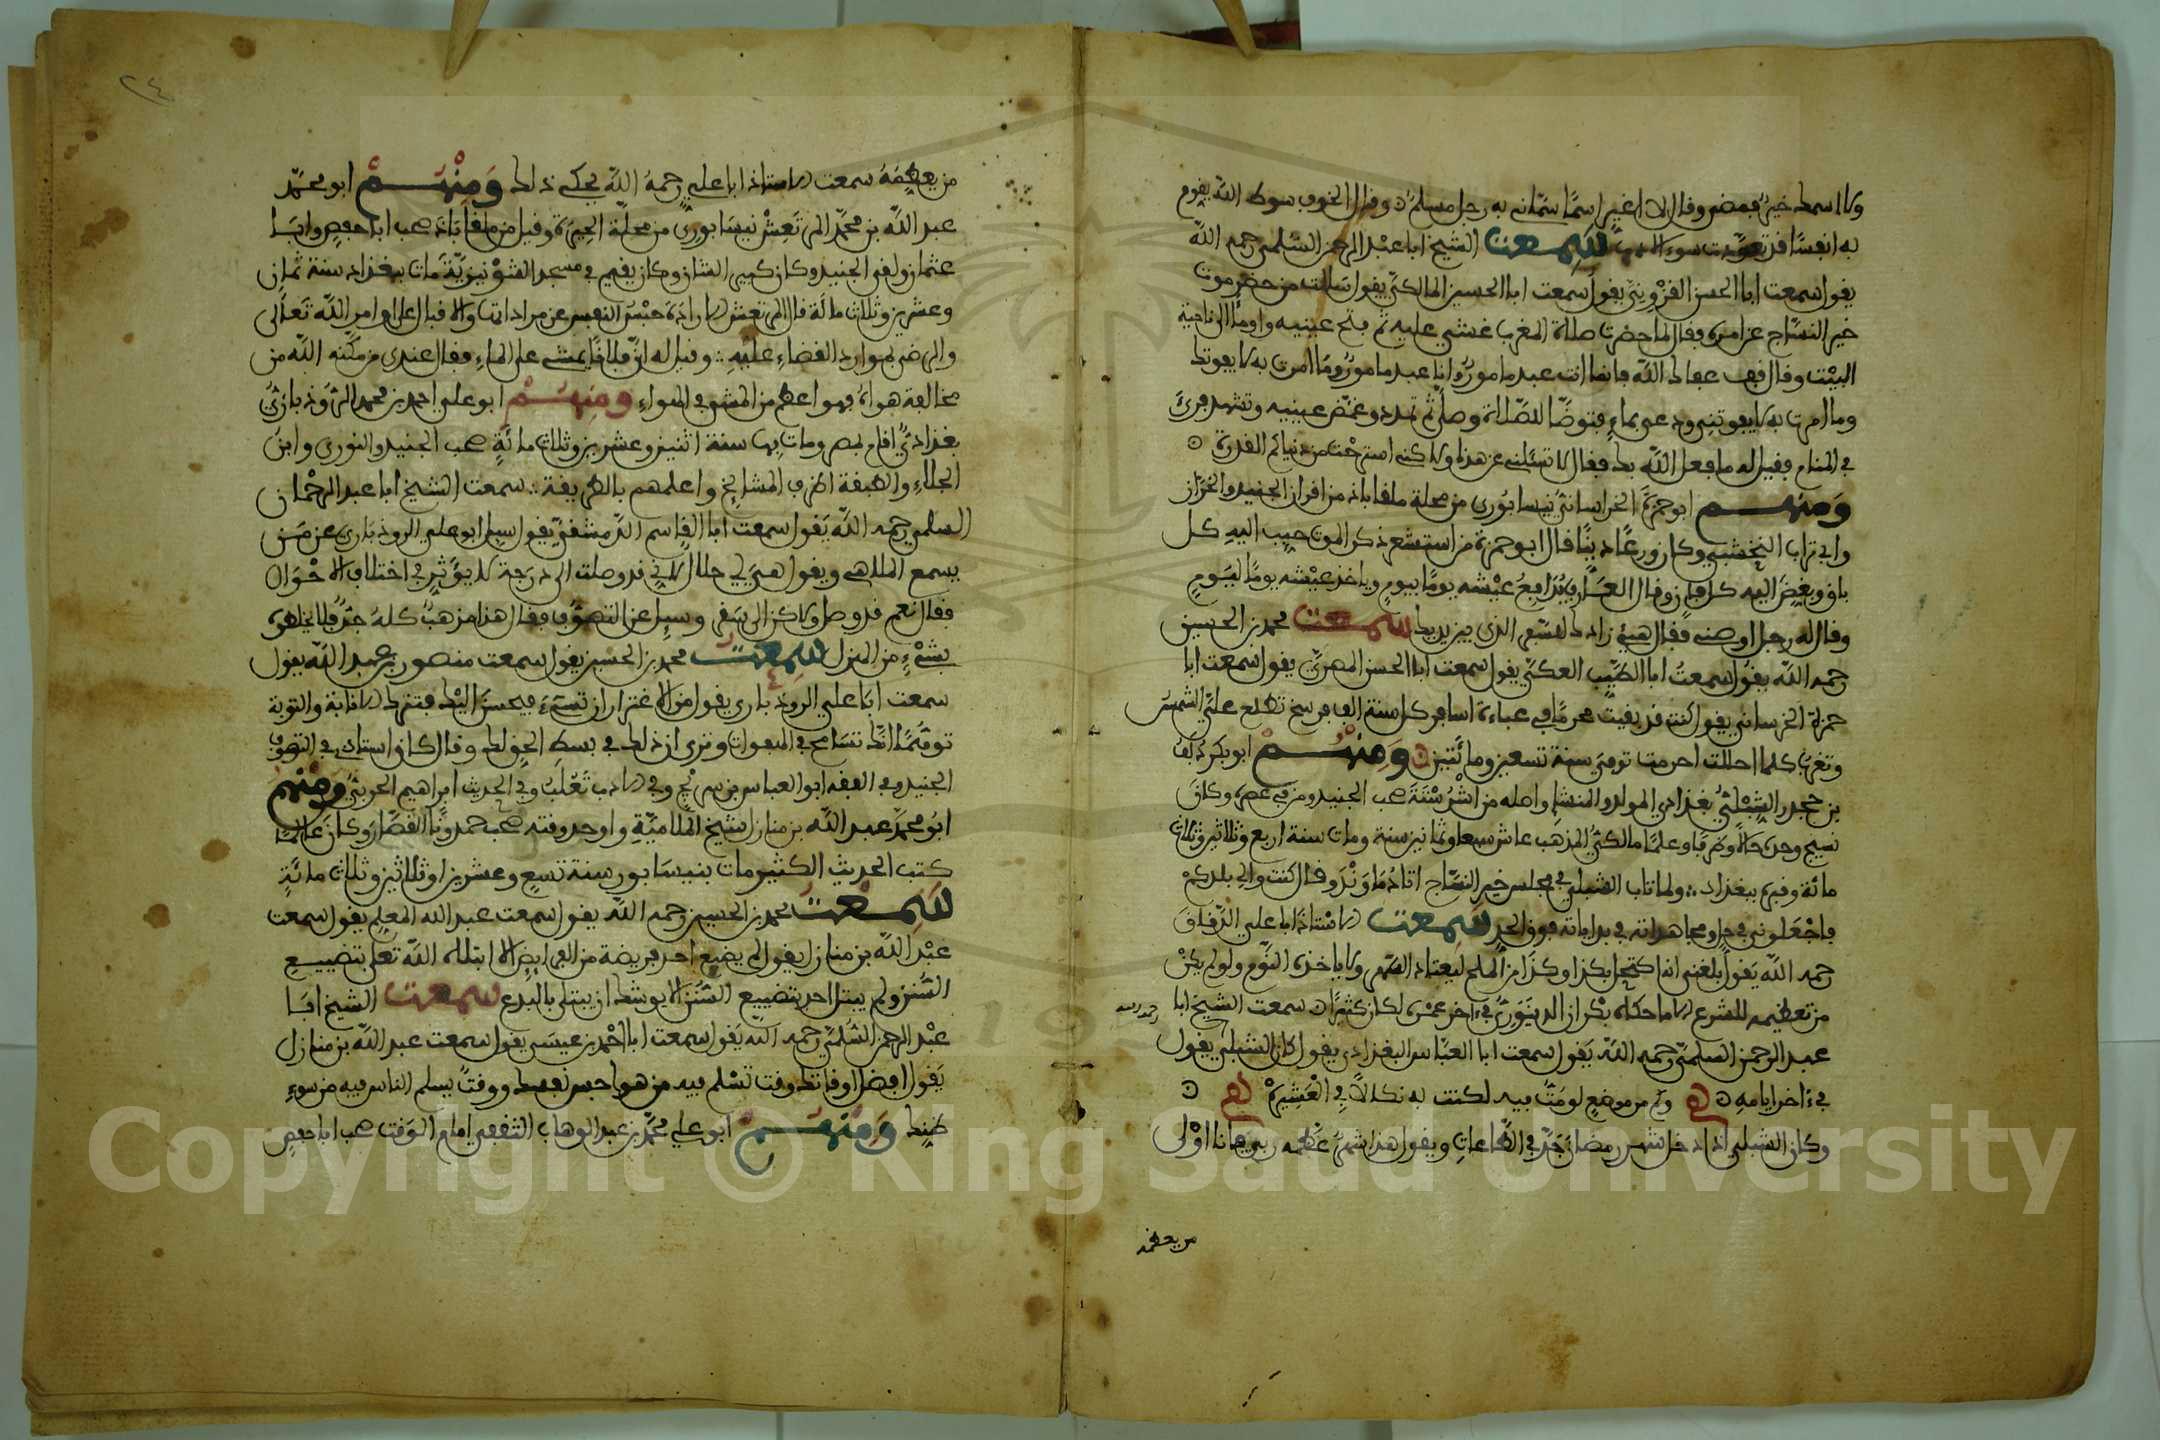 ولا اسمك خير فمضى وقال لا اغير اسما سماني به رجل مسلم وقال الخوف سوط الله يقوم
به انفسا قد تعودت سوء الادب سمعت الشيخ ابا عبد الرحمن السلمي رحمه الله
يقول سمعت ابا الحسن القزويني يقول سمعت ابا الحسين المالكي يقول سالت من حضر موت
خير النساج عن امره فقال لما حضرت صلاة المغرب غشي عليه ثم فتح عينيه واوما الى ناحية
البيت وقال قف عافاك الله فانما انت عبد مامور وانا عبد مامور وما امرت به لا يفوتك
وما امرت به يفوتني ودعى بماء فتوضا للصلاة وصلى ثم تمدد وغمض عينيه وتشهد فرئ
في المنام فقيل له ما فعل الله بك فقال لا تسئلني عن هذا ولاكني استرحت من دنياكم القذرة
ومنهم ابو حمزة الخراساني نيسابوري من محلة ملقاباذ من اقران الجنيد والخراز
وابي تراب النخشبي وكان ورعا دينا قال ابو حمزة من استشعر ذكر الموت حبب اليه كل
باق وبغض اليه كل فان وقال العارف يدافع عيشه يوما بيوم وياخذ عيشه يوما ليوم
وقال له رجل اوصني فقال هيئ زادك للسفر الذي بين يديك سمعت محمد بن الحسين
رحمه الله يقول سمعت ابا الطيب العكي يقول سمعت ابا الحسن المصري يقول سمعت ابا
حمزة الخرساني يقول كنت قد بقيت محرما في عباءة اسافر كل سنة الف فرسخ تطلع علي الشمس
وتغرب كلما احللت احرمت توفي سنة تسعين ومائتين ومنهم ابو بكر دلف
بن جحدر الشبلي بغدادي المولد والمنشا واصله من اشرسنة صحب الجنيد ومن في عصره وكان
نسيج وحده حالا وظرفا وعلما مالكي المذهب عاش سبعا وثمانين سنة ومات سنة اربع وثلاثين وثلاث
مائة وقبره ببغداد ولما تاب الشبلي في مجلس خير النساج اتا دماوند وقال كنت والي بلدكم
فاجعلوني في حل ومجاهداته في بداياته فوق الحد سمعت الاستاذ ابا علي الدقاق
رحمه الله يقول بلغني انه اكتحل بكذا وكذا من الملح ليعتاد السهر ولا ياخذه النوم ولو لم يكن
من تعظيمه للشرع الا ما حكاه بكران الدينوري في اخر عمره لكان كثيرا سمعت الشيخ ابا
رحمه الله
عبد الرحمن السلمي رحمه الله يقول سمعت ابا العباس البغدادي يقول كان الشبلي يقول
في ءاخر ايامه وكم من موضع لو مت فيه لكنت به نكالا في العشيرة
وكان الشبلي اذا دخل شهر رمضان جد في الطاعات ويقول هذا شهر عظمه ربي فانا اولى
من يعظمه
٢٤
من يعظمه سمعت الاستاذ ابا علي رحمه الله يحكي ذلك ومنهم ابو محمد
عبد الله بن محمد المرتعش نيسابوري من محلة الحيرة وقيل من ملقاباذ صحب ابا حفص وابا
عثمان ولقي الجنيد وكان كبير الشان وكان يقيم في مسجد الشونيزية مات ببغداد سنة ثمان
وعشرين وثلاث مائة قال المرتعش الارادة حبس النفس عن مراداتها والاقبال على اوامر الله تعالى
والرضى بموارد القضاء عليه وقيل له ان فلانا يمشي على الماء فقال عندي من مكنه الله من
مخالفة هواه فهو اعظم من المشي في الهواء ومنهم ابو علي احمد بن محمد الروذباري
بغدادي اقام بمصر ومات بها سنة اثنين وعشرين وثلاث مائة صحب الجنيد والنوري وابن
الجلاء والطبقة اظرف المشايخ واعلمهم بالطريقة سمعت الشيخ ابا عبد الرحمان
السلمي رحمه الله يقول سمعت ابا القاسم الدمشقي يقول سيل ابو علي الروذباري عن من
يسمع الملاهي ويقول هي لي حلال لاني قد وصلت الى درجة لا يؤثر في اختلاف الاحوال
فقال نعم قد وصل ولاكن الى سقر وسيل عن التصوف فقال هذا مذهب كله جد فلا يخلطوه
بشيء من الهزل سمعت محمد بن الحسين يقول سمعت منصور بن عبد الله يقول
سمعت ابا علي الروذباري يقول من الاغترار ان تسيء فيحسن اليك فتترك الانابة والتوبة
توهما انك تسامح في الهفوات وترى ان ذلك في بسط الحق لك وقال كان استاذي في التصوف
الجنيد وفي الفقه ابو العباس بن سريج وفي الادب ثعلب وفي الحديث ابراهيم الحربي ومنهم
ابو محمد عبد الله بن منازل شيخ الملامية واوحد وقته صحب حمدونا القصار وكان عالما
كتب الحديث الكثير مات بنيسابور سنة تسع وعشرين او ثلاثين وثلاث مائة
سمعت محمد بن الحسين رحمه الله يقول سمعت عبد الله المعلم يقول سمعت
عبد الله بن منازل يقول لم يضيع احد فريضة من الفرايض الا ابتلاه الله تعلى بتضييع
السنن ولم يبتل احد بتضييع السنن الا يوشك ان يبتلى بالبدع سمعت الشيخ ابا
عبد الرحمن السلمي رحمه الله يقول سمعت ابا احمد بن عيسى يقول سمعت عبد الله بن منازل
يقول افضل اوقاتك وقت تسلم فيه من هواجس نفسك ووقت يسلم الناس فيه من سوء
ظنك ومنهم ابو علي محمد بن عبد الوهاب الثقفي امام الوقت صحب ابا حفص
Copyright © King Saud University